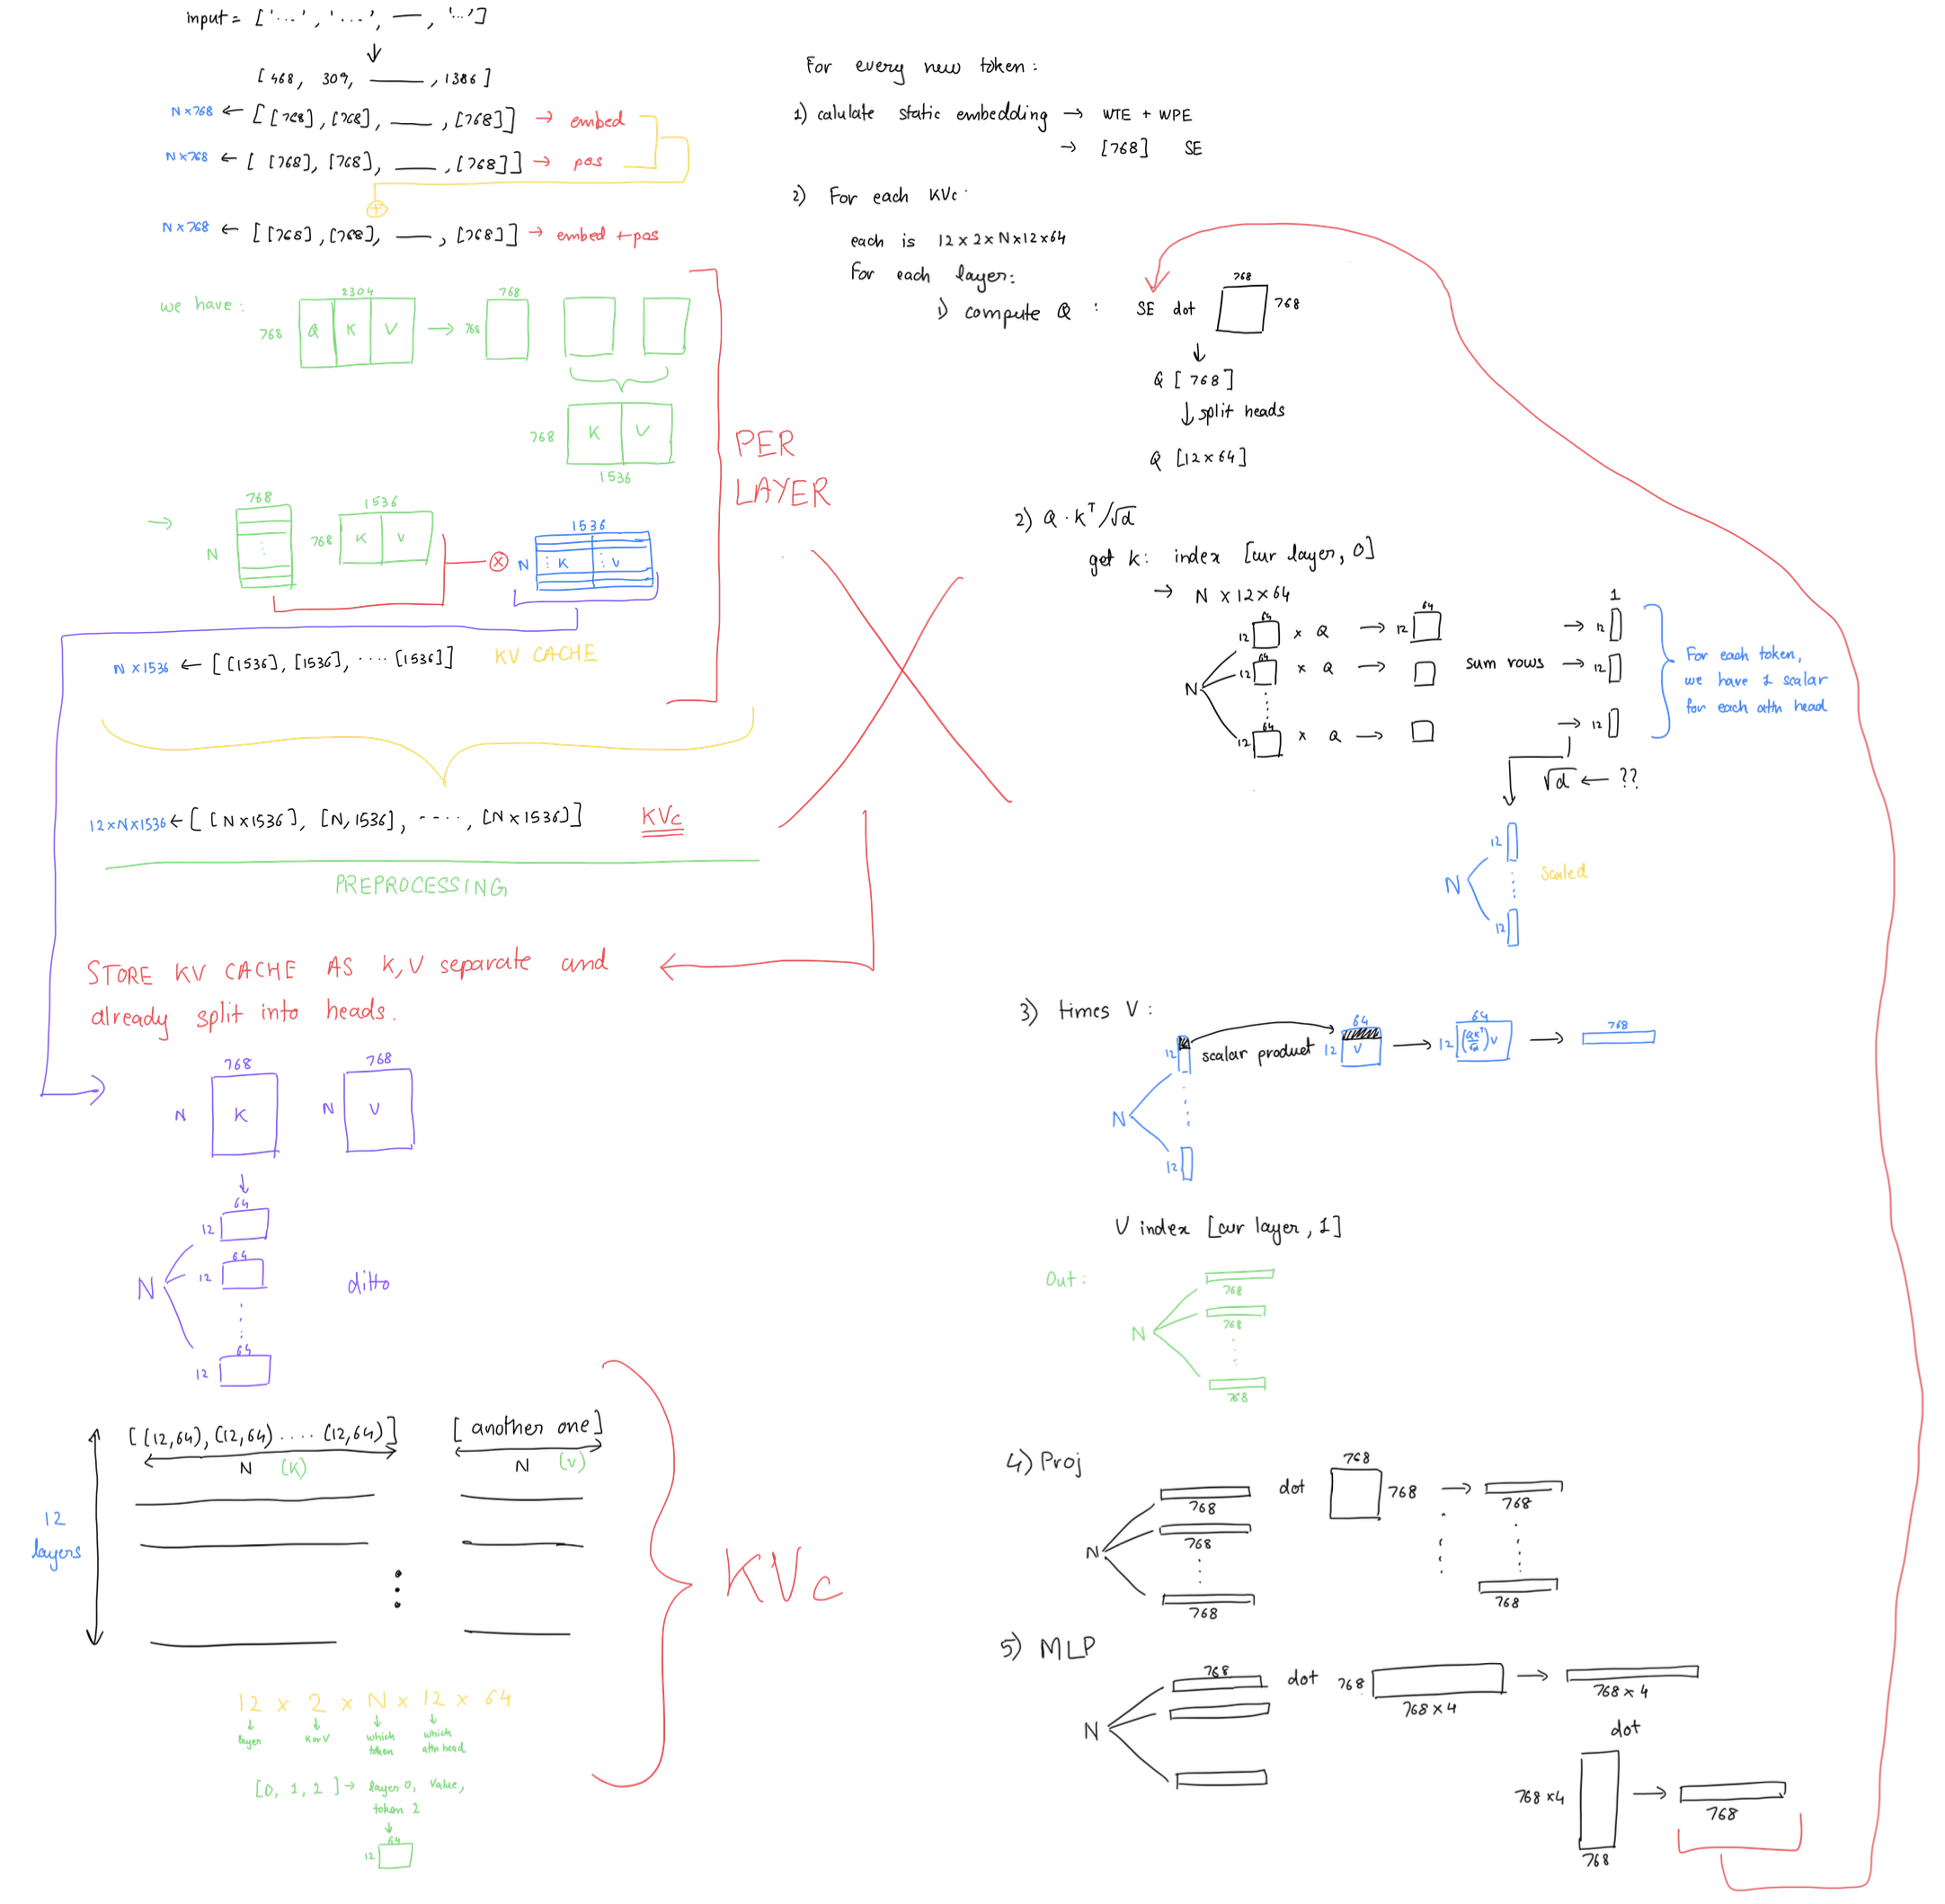 input = ['...', '....', —, '...']
[468, 309, ——, 1386]
N×768 ← [[768],[768], ——, [768]] → embed
N×768 ← [ [768], [768], ——, [768]] → pos
+
N×768 ← [[768],[768], ——, [768]] → embed + pos
we have :
2304
768
Q K V
→
768
768
768
K V
1536
PER
LAYER
→
768
N
1536
768
K V
⊗
1536
N
K V
N×1536 ← [[1536], [1536], .... [1536]]
KV CACHE
12×N×1536 ← [ [N×1536], [N,1536], ----, [N×1536]]
KVc
PREPROCESSING
STORE KV CACHE AS K,V separate and
already split into heads.
768
N
K
768
N
V
↓
64
12
64
12
N
ditto
64
12
[(12,64), (12,64) .... (12,64)]
[another one]
N (K)
N (V)
12
layers
KVc
12 × 2 × N × 12 × 64
layer
K or V
which
token
which
attn head
[0, 1, 2] → layer 0, value,
token 2
↓
64
12
For every new token :
1) calulate static embedding → WTE + WPE
→ [768] SE
2) For each KVc.
each is 12×2×N×12×64
For each layer:
1) compute Q : SE dot
768
768
↓
Q [768]
↓ split heads
Q [12×64]
2) Q·Kᵀ/√d
get K: index [cur layer, 0]
→ N × 12 × 64
64
12
× Q → 12
64
1
→ 12
64
12
× Q →
sum rows → 12
N
64
12
× Q →
→ 12
For each token,
we have 1 scalar
for each attn head
√d ← ??
12
N
scaled
12
3) times V :
12
scalar product
64
12
V
→
64
12
(QKᵀ/√d)V
→
768
N
12
V index [cur layer, 1]
Out :
768
768
N
768
4) Proj
768
dot
768
768
→
768
768
N
768
768
5) MLP
768
dot
768
768×4
→
768×4
N
dot
768×4
768
→
768